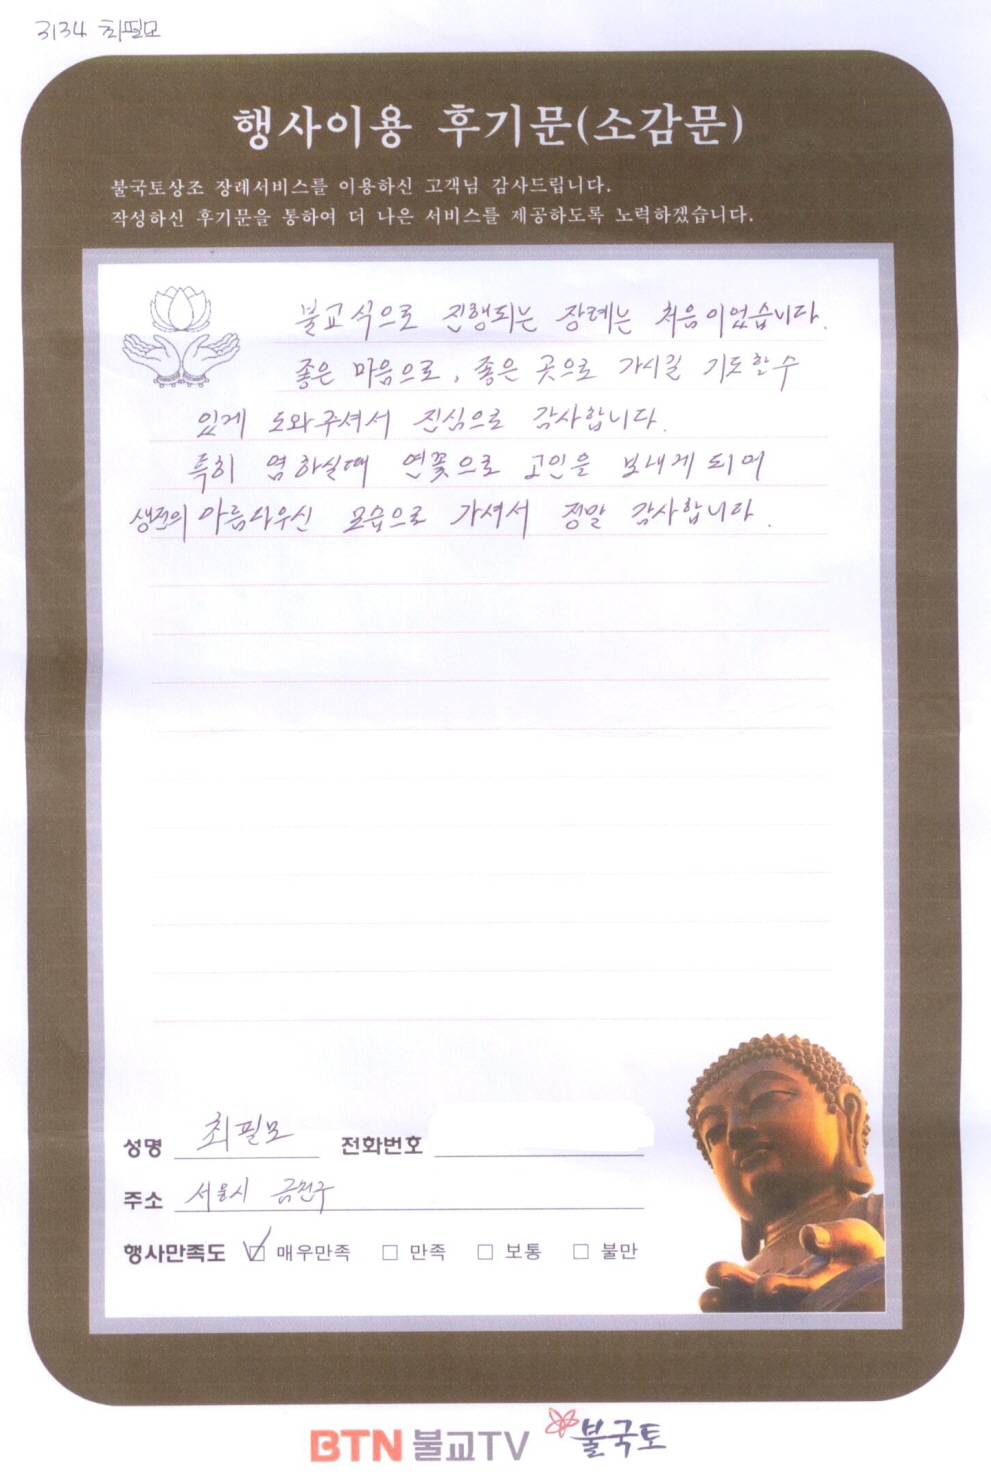 3134 최필모
행사이용 후기문(소감문)
불국토상조 장례서비스를 이용하신 고객님 감사드립니다.
작성하신 후기문을 통하여 더 나은 서비스를 제공하도록 노력하겠습니다.
불교식으로 진행되는 장례는 처음이었습니다.
좋은 마음으로, 좋은 곳으로 가시길 기도할 수
있게 도와주셔서 진심으로 감사합니다.
특히 염하실때 연꽃으로 고인을 보내게 되어
생전의 아름다우신 모습으로 가셔서 정말 감사합니다.
성명 최필모 전화번호
주소 서울시 금천구
행사만족도 ☑ 매우만족 □ 만족 □ 보통 □ 불만
BTN 불교TV 불국토